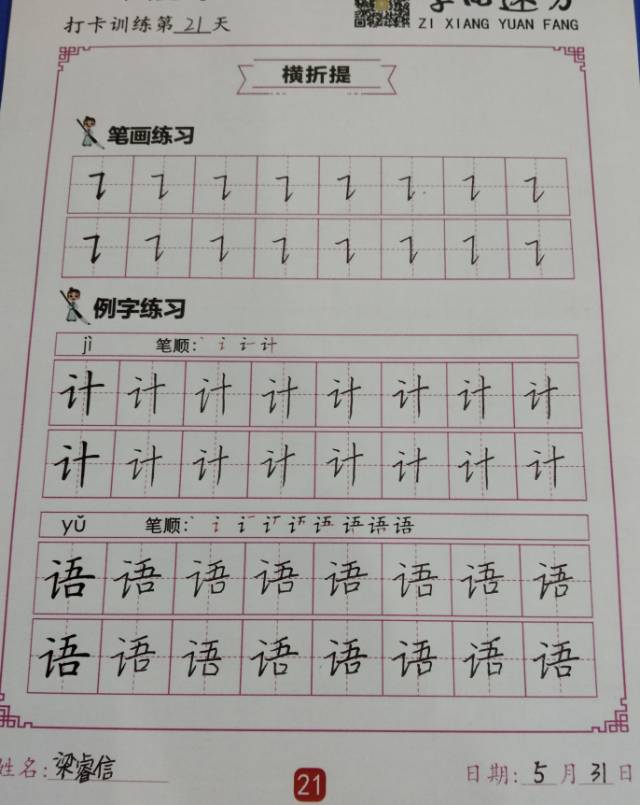 打卡训练第 21 天
ZI XIANG YUAN FANG
横折提
笔画练习
例字练习
jì 笔顺: 计
计 计 计 计 计 计 计 计
计 计 计 计 计 计 计 计
yǔ 笔顺: 语
语 语 语 语 语 语 语 语
语 语 语 语 语 语 语 语
姓名: 梁睿信
21
日期: 5 月 31 日